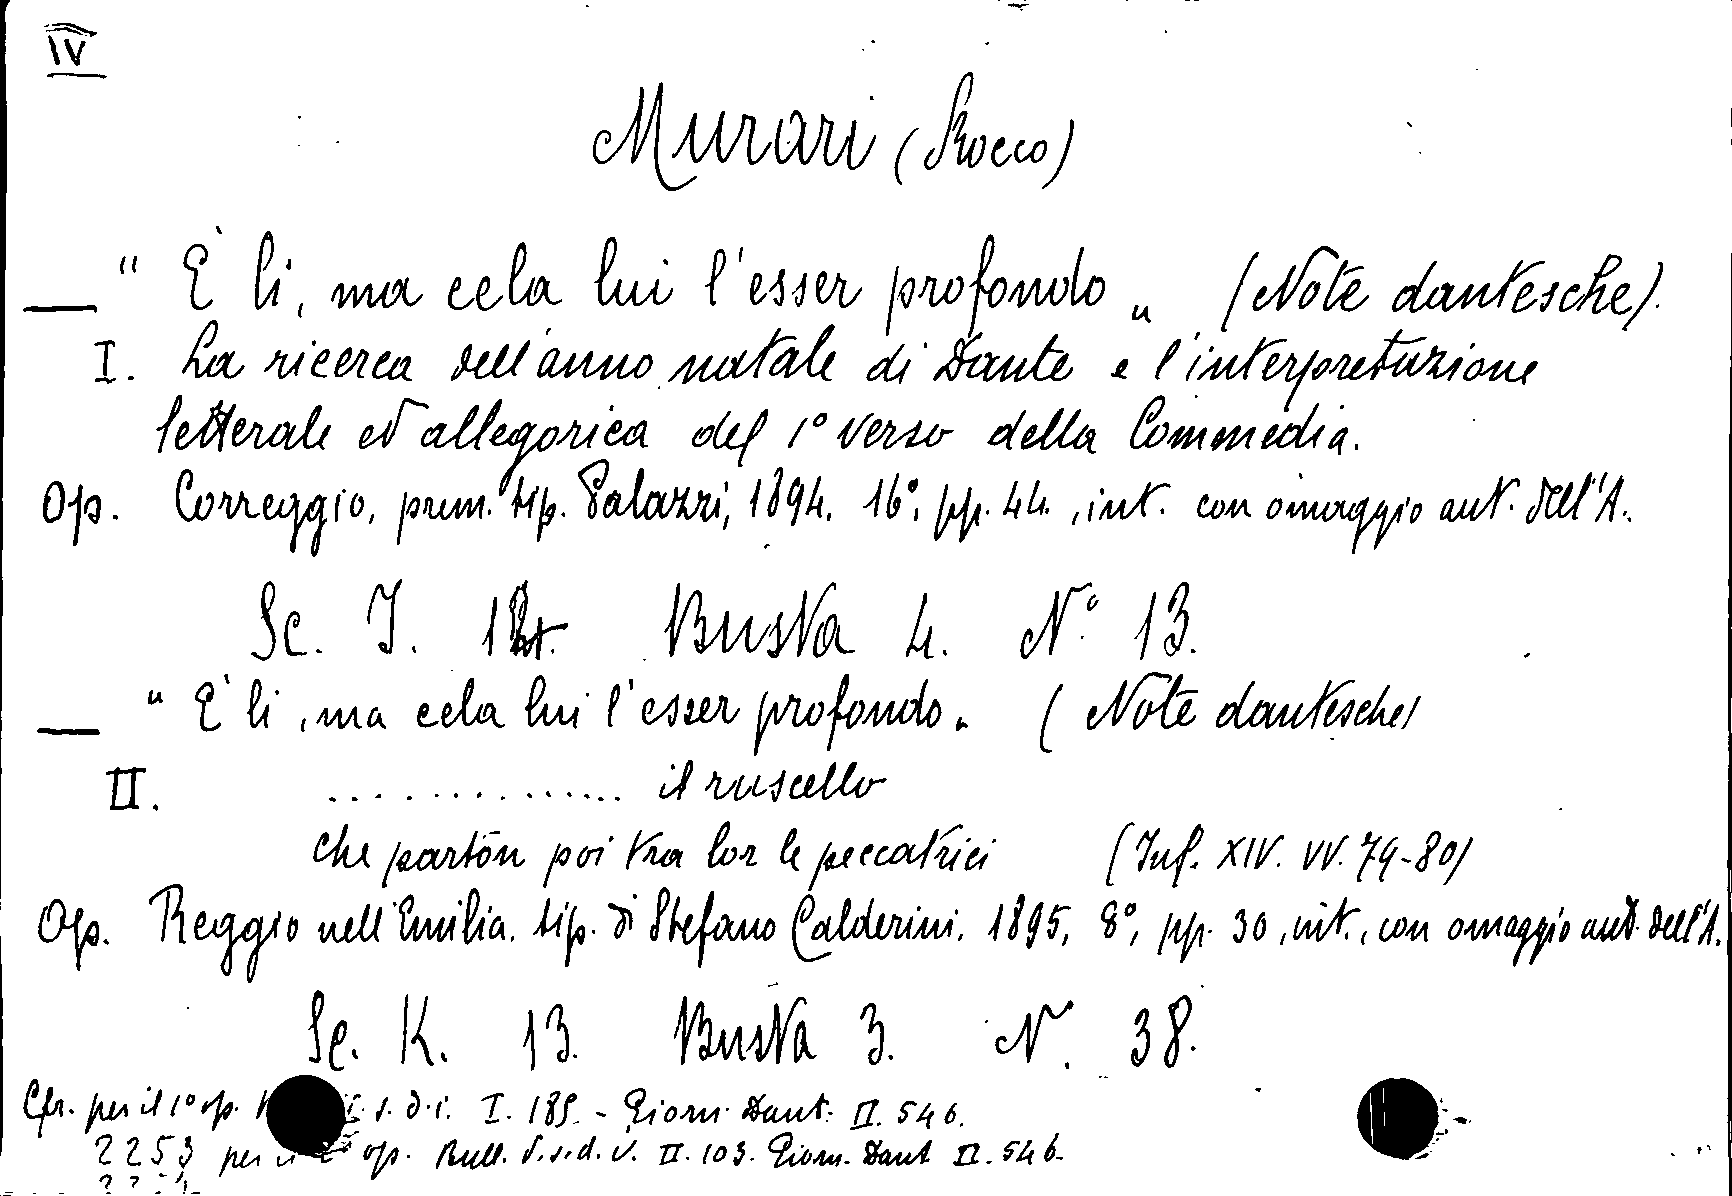 IV
Murari (Rocco)
— " È li, ma cela lui l'esser profondo „ (Note dantesche).
I. La ricerca dell'anno natale di Dante e l'interpretazione
letterale ed allegorica del 1° verso della Commedia.
Op. Correggio, prem. tip. Palazzi, 1894. 16°, pp. 44. , int. con omaggio aut. dell'A.
Sc. J. Busta 4. N° 13.
— " È li, ma cela lui l'esser profondo „ (Note dantesche)
II. .............. il ruscello
che parton poi tra lor le peccatrici (Inf. XIV. vv. 79-80)
Op. Reggio nell'Emilia. tip. di Stefano Calderini. 1895, 8°, pp. 30, int., con omaggio aut. dell'A.
Sc. K. 13. Busta 3. N. 38.
Cfr. per il 1° op. s. d. i. I. 189. - Giorn. Dant. II. 546.
2253 per il 2° op. Bull. S. s. d. i. II. 103. Giorn. Dant II. 546.